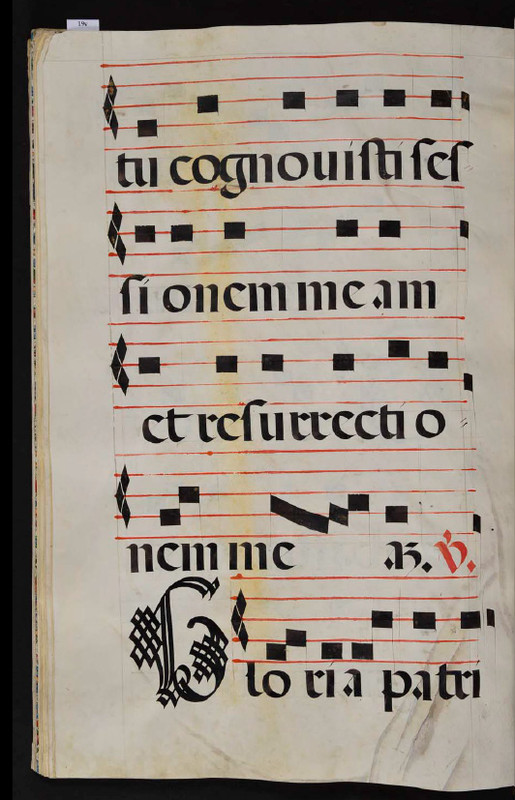 tu cognouisti ses
si onem me am
et resurrecti o
nem me R. V.
Glo ri a patri